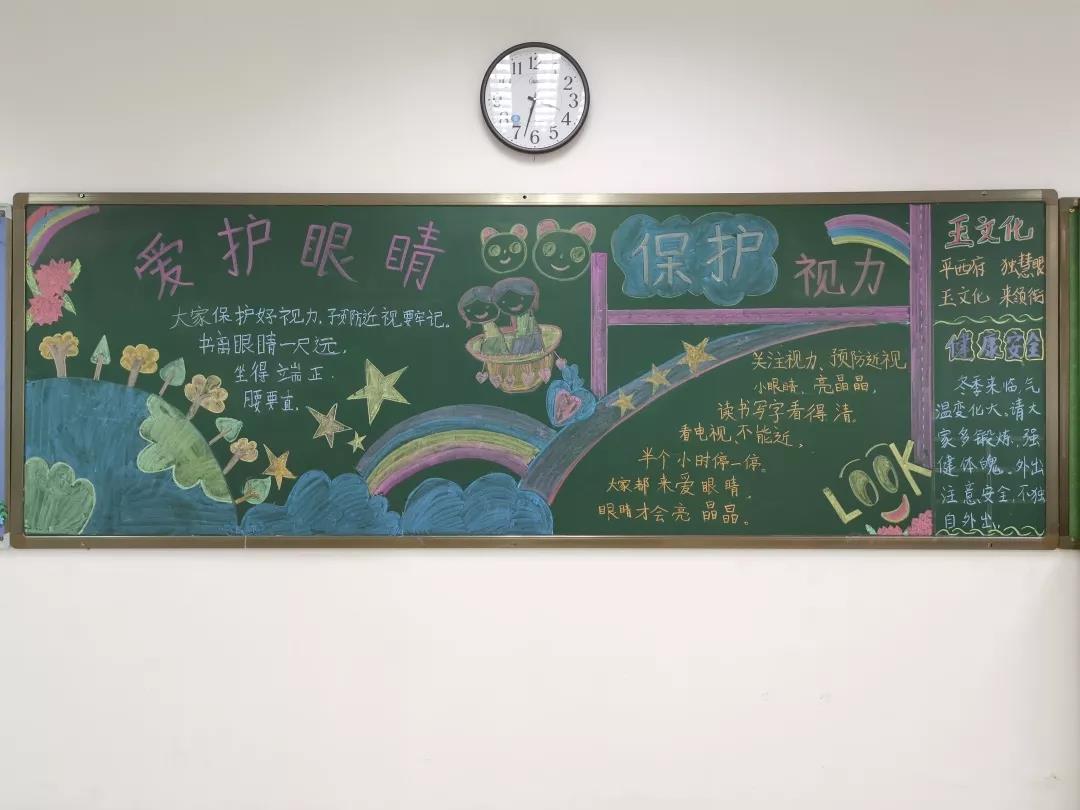 11 12
2
9 3
8 4
7 6 5
爱护眼睛
大家保护好视力,预防近视要牢记。
书离眼睛一尺远,
坐得端正.
腰要直.
保护
视力
关注视力、预防近视,
小眼睛,亮晶晶,
读书写字看得清。
看电视,不能近,
半个小时停一停。
大家都来爱眼睛,
眼睛才会亮晶晶。
LOOK
玉文化
平西府 独慧眼
玉文化 来领衔
健康安全
冬季来临,气
温变化大。请大
家多锻炼,强
健体魄。外出
注意安全,不独
自外出.